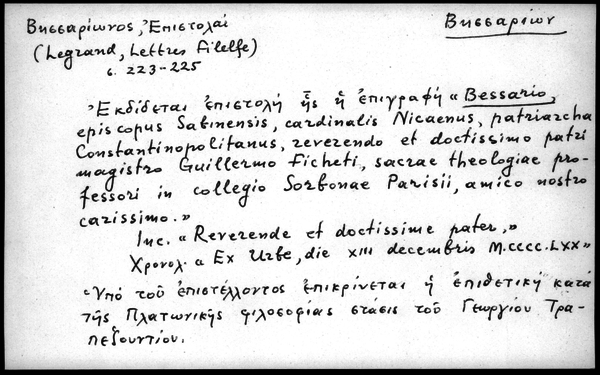 Βησσαρίωνος, Ἐπιστολαί
Βησσαρίων
(Legrand, Lettres Filelfe)
σ. 223-225
Ἐκδίδεται ἐπιστολή ἧς ἡ ἐπιγραφή «Bessario,
episcopus Sabinensis, cardinalis Nicaenus, patriarcha
Constantinopolitanus, reverendo et doctissimo patri
magistro Guillermo Ficheti, sacrae theologiae pro-
fessori in collegio Sorbonae Parisii, amico nostro
carissimo.»
Inc. «Reverende et doctissime pater,»
Χρονολ. «Ex Urbe, die XIII decembris M.CCCC.LXX»
Ὑπό τοῦ ἐπιστέλλοντος ἐπικρίνεται ἡ ἐπιθετική κατά
τῆς Πλατωνικῆς φιλοσοφίας στάσις τοῦ Γεωργίου Τρα-
πεζουντίου.